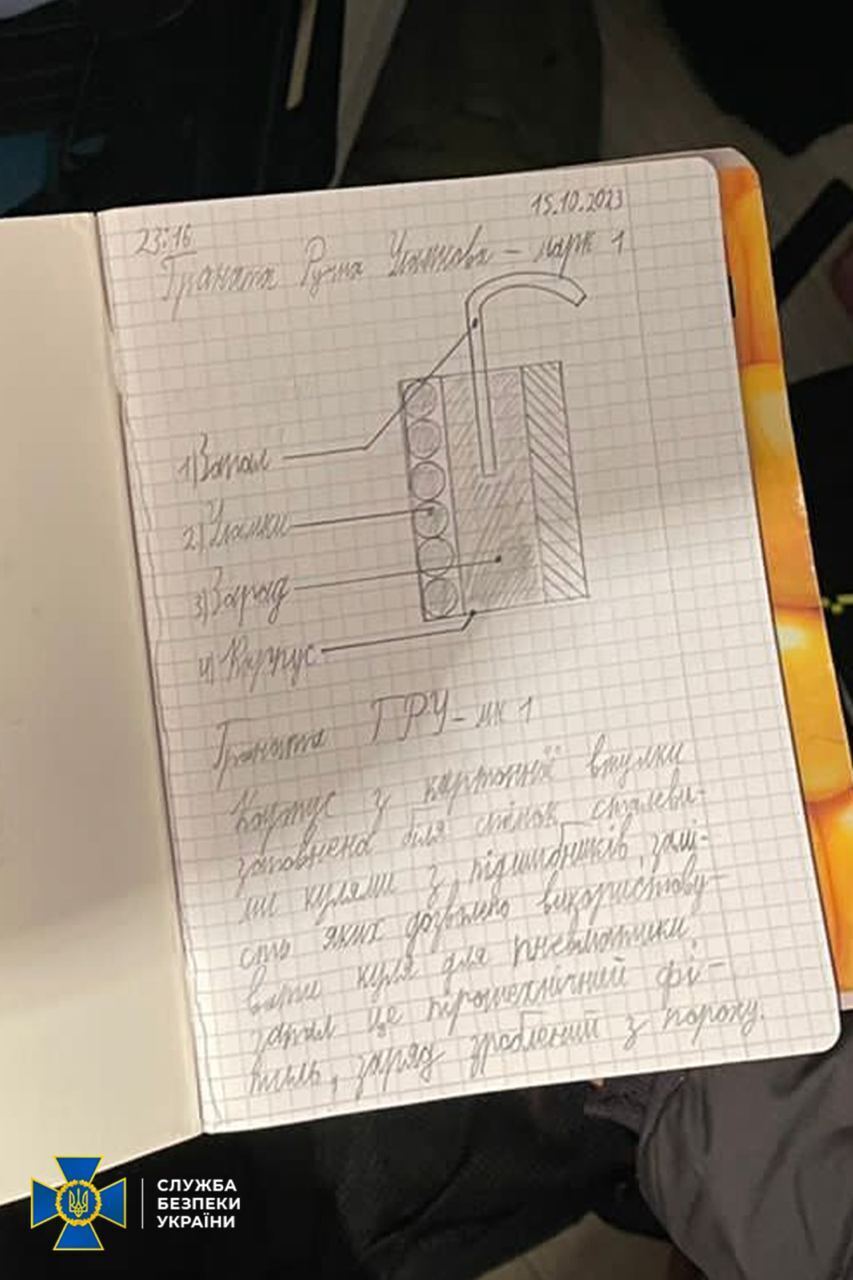 23:16
15.10.2023
Граната Ручна Уламкова - марк 1
1) Запал
2) Уламки
3) Заряд
4) Корпус
Граната ГРУ - мк 1
Корпус з картонної втулки
заповнена біля стінок сталеви-
ми кулями з підшибників, замі-
сть яких дозволено використову-
вати кулі для пневматики,
запал це піротехнічний фі-
тиль, заряд зроблений з пороху.
СЛУЖБА
БЕЗПЕКИ
УКРАЇНИ